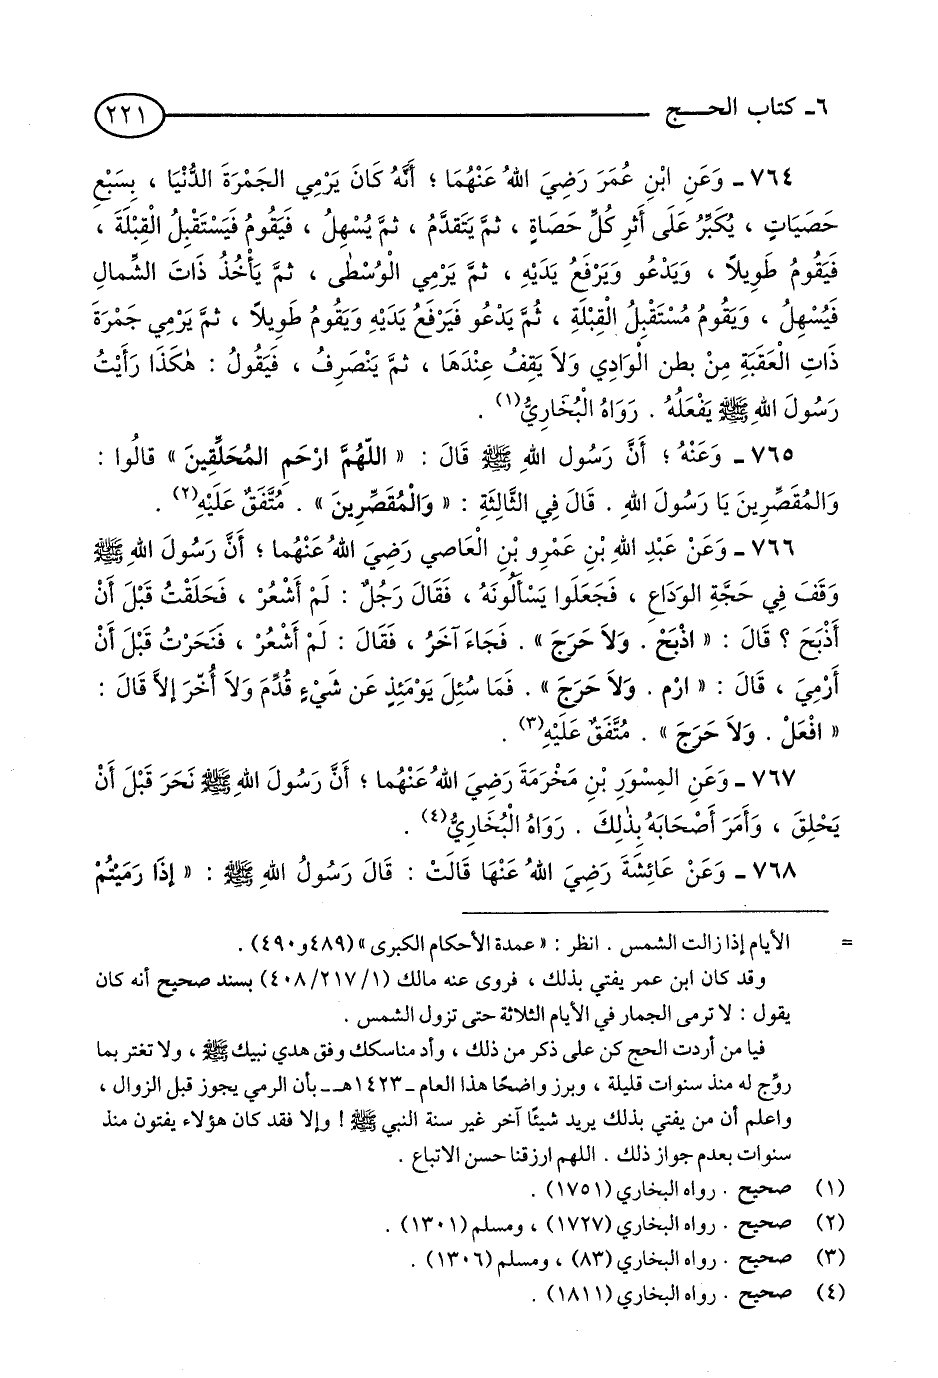 ٦ـ كتاب الحـــج
٢٢١
٧٦٤ ـ وَعَنِ ابْنِ عُمَرَ رَضِيَ اللهُ عَنْهُمَا ؛ أَنَّهُ كَانَ يَرْمِي الجَمْرَةَ الدُّنْيَا ، بِسَبْعِ
حَصَيَاتٍ ، يُكَبِّرُ عَلَى أَثَرِ كُلِّ حَصَاةٍ ، ثمَّ يَتَقدَّمُ ، ثمَّ يُسْهِلُ ، فَيَقُومُ فَيَسْتَقْبِلُ الْقِبْلَةَ ،
فَيَقُومُ طَوِيلاً ، وَيَدْعُو وَيَرْفَعُ يَدَيْهِ ، ثمَّ يَرْمِي الْوُسْطَى ، ثمَّ يَأْخُذُ ذَاتَ الشِّمالِ
فَيُسْهِلُ ، وَيَقُومُ مُسْتَقْبِلَ الْقِبْلَةِ ، ثُمَّ يَدْعُو فَيَرْفَعُ يَدَيْهِ وَيَقُومُ طَوِيلاً ، ثمَّ يَرْمِي جَمْرَةَ
ذَاتِ الْعَقَبَةِ مِنْ بطنِ الْوَادِي وَلاَ يَقِفُ عِنْدَهَا ، ثمَّ يَنْصَرِفُ ، فَيَقُولُ : هٰكَذَا رَأَيْتُ
رَسُولَ اللهِ ﷺ يَفْعَلُهُ . رَوَاهُ الْبُخَارِيُّ(١) .
٧٦٥ ـ وَعَنْهُ ؛ أَنَّ رَسُول اللهِ ﷺ قَالَ : « اللّهُمَّ ارْحَمِ المُحَلِّقِينَ » قالُوا :
وَالمُقَصِّرِينَ يَا رَسُولَ اللهِ . قَالَ فِي الثَّالِثَةِ : « وَالْمُقَصِّرِينَ » . مُتَّفَقٌ عَلَيْهِ(٢) .
٧٦٦ ـ وَعَنْ عَبْدِ اللهِ بْنِ عَمْرِو بْنِ الْعَاصِي رَضِيَ اللهُ عَنْهُما ؛ أَنَّ رَسُولَ اللهِ ﷺ
وَقَفَ فِي حَجَّةِ الوَدَاعِ ، فَجَعَلُوا يَسْأَلُونَهُ ، فَقَالَ رَجُلٌ : لَمْ أَشْعُرْ ، فَحَلَقْتُ قَبْلَ أَنْ
أَذْبَحَ ؟ قَالَ : « اذْبَحْ . وَلاَ حَرَجَ » . فَجَاءَ آخَرُ ، فَقَالَ : لَمْ أَشْعُرْ ، فَنَحَرْتُ قَبْلَ أَنْ
أَرْمِيَ ، قَالَ : « ارْمِ . وَلاَ حَرَجَ » . فَمَا سُئِلَ يَوْمَئِذٍ عَن شَيْءٍ قُدِّمَ وَلاَ أُخِّرَ إلاَّ قَالَ :
« افْعَلْ . وَلاَ حَرَجَ » . مُتَّفَقٌ عَلَيْهِ(٣) .
٧٦٧ ـ وَعَنِ المِسْوَرِ بْنِ مَخْرَمَةَ رَضِيَ اللهُ عَنْهُما ؛ أَنَّ رَسُولَ اللهِ ﷺ نَحَرَ قَبْلَ أَنْ
يَحْلِقَ ، وَأَمَرَ أَصْحَابَهُ بِذٰلِكَ . رَوَاهُ الْبُخَارِيُّ(٤) .
٧٦٨ ـ وَعَنْ عَائِشَةَ رَضِيَ اللهُ عَنْهَا قَالَتْ : قَالَ رَسُولُ اللهِ ﷺ : « إِذَا رَمَيْتُمْ
= الأيام إذا زالت الشمس . انظر : « عمدة الأحكام الكبرى » (٤٨٩و٤٩٠) .
وقد كان ابن عمر يفتي بذلك ، فروى عنه مالك (١/٢١٧/٤٠٨) بسند صحيح أنه كان
يقول : لا ترمى الجمار في الأيام الثلاثة حتى تزول الشمس .
فيا من أردت الحج كن على ذكر من ذلك ، وأد مناسكك وفق هدي نبيك ﷺ ، ولا تغتر بما
روِّج له منذ سنوات قليلة ، وبرز واضحًا هذا العام ـ ١٤٢٣هـ ـ بأن الرمي يجوز قبل الزوال ،
واعلم أن من يفتي بذلك يريد شيئًا آخر غير سنة النبي ﷺ ! وإلا فقد كان هؤلاء يفتون منذ
سنوات بعدم جواز ذلك . اللهم ارزقنا حسن الاتباع .
(١) صحيح . رواه البخاري (١٧٥١) .
(٢) صحيح . رواه البخاري (١٧٢٧) ، ومسلم (١٣٠١) .
(٣) صحيح . رواه البخاري (٨٣) ، ومسلم (١٣٠٦) .
(٤) صحيح . رواه البخاري (١٨١١) .